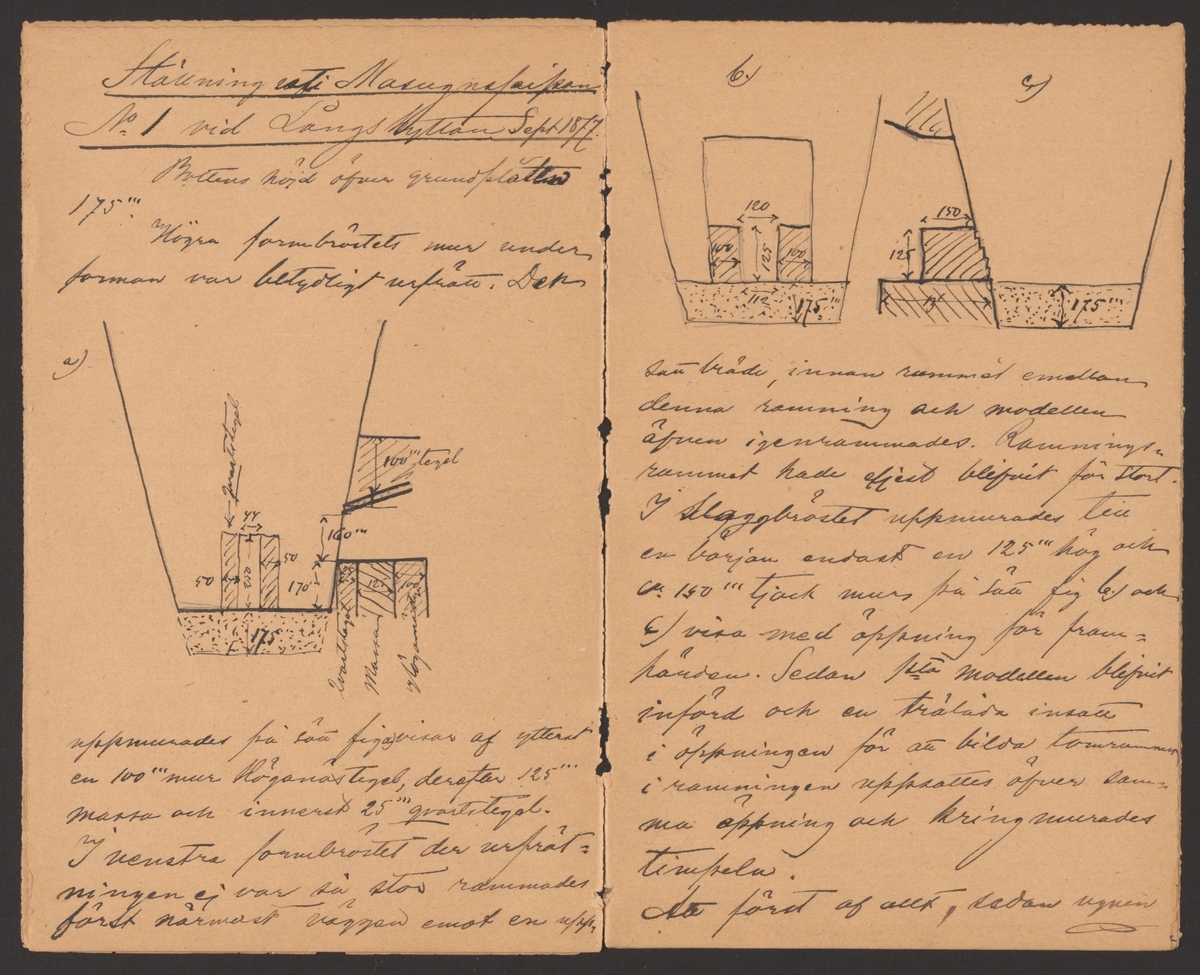 Ställning uti Masugnspipan
No 1 vid Långshyttan Sept 1877
Bottens höjd öfver grundplåtten
175'''.
Högra formbröstets mur under
forman var betydligt urfrätt. Den
a)
qvartstegel
44
50
50
250
175
100''' tegel
160'''
170'
25
125
100
Qvartstegel
Massa
Höganäs
uppmurades på sätt fig a) visar af ytterst
en 100''' mur Höganästegel, derefter 125'''
massa och innerst 25''' qvartstegel.
I venstra formbröstet der urfrät=
ningen ej var så stor rammades
först närmast väggen emot en upp=
b.)
120
100
125
100
112
175'''
c)
150
125
13'
175'''
satt bräde, innan rummet emellan
denna ramning och modellen
äfven igenrammades. Ramnings=
rummet hade ejest blifvit för stort.
I Slaggbröstet uppmurades till
en början endast en 125''' hög och
ca 150''' tjock murs på sätt fig b) och
c) visa med öppning för fram=
härden. Sedan modellen blifvit
införd och en trälåda insatt
i öppningen för att bilda tomrummet
i ramningen uppsattes öfver sam=
ma öppning och kringmurades
timpeln.
först af allt, sedan ugnen